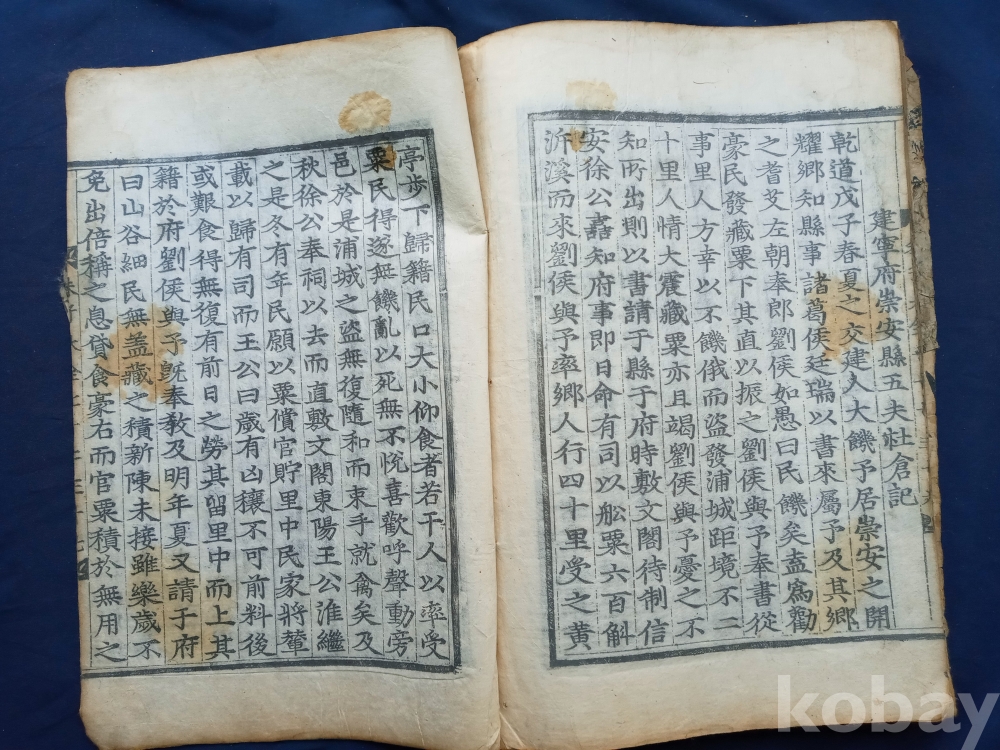 建寧府崇安縣五夫社倉記
乾道戊子春夏之交建人大饑予居崇安之開
耀鄉知縣事諸葛侯廷瑞以書來屬予及其鄉
之耆艾左朝奉郎劉侯如愚曰民饑矣盍爲勸
豪民發藏粟下其直以振之劉侯與予奉書從
事里人方幸以不饑俄而盜發浦城距境不二
十里人情大震藏粟亦且竭劉侯與予憂之不
知所出則以書請于縣于府時敷文閣待制信
安徐公嚞知府事即日命有司以舩粟六百斛
泝溪而來劉侯與予率鄉人行四十里受之黃
亭步下歸籍民口大小仰食者若干人以率受
粟民得遂無饑亂以死無不悅喜歡呼聲動旁
邑於是浦城之盜無復隨和而束手就禽矣及
秋徐公奉祠以去而直敷文閣東陽王公淮繼
之是冬有年民願以粟償官貯里中民家將輦
載以歸有司而王公曰歲有凶穰不可前料後
或艱食得無復有前日之勞其留里中而上其
籍於府劉侯與予旣奉敎及明年夏又請于府
曰山谷細民無盖藏之積新陳未接雖樂歲不
免出倍稱之息貸食豪右而官粟積於無用之
kobay